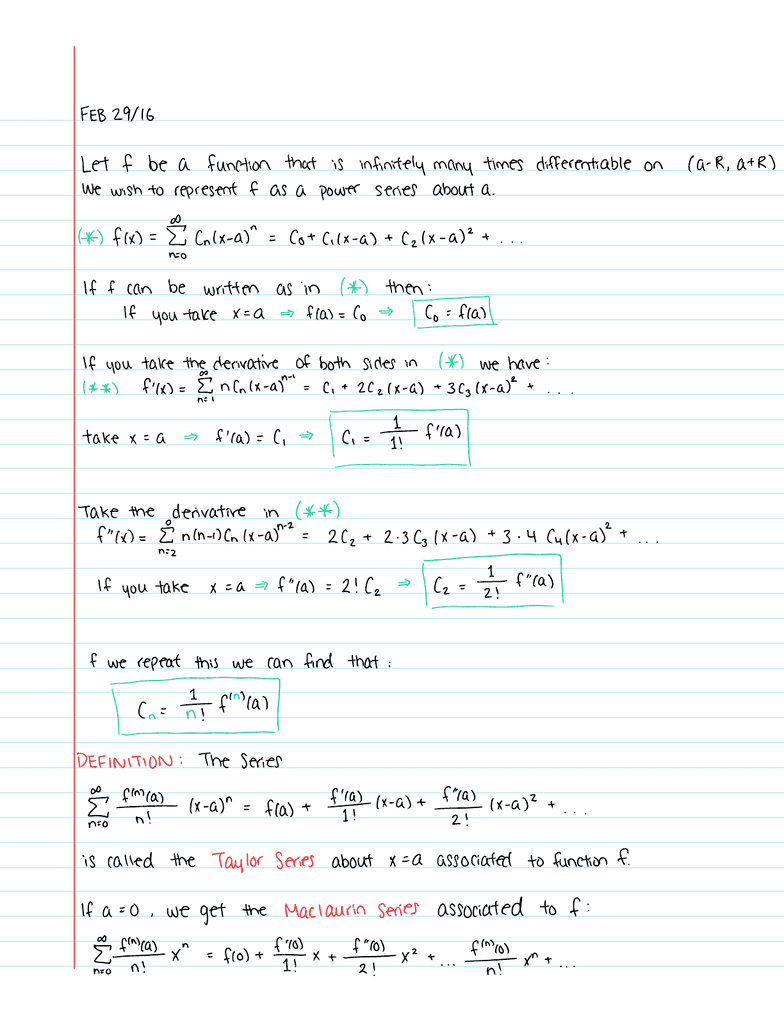 FEB 29/16
Let f be a function that is infinitely many times differentiable on (a-R, a+R)
We wish to represent f as a power series about a.
(*) f(x) = ∑_{n=0}^{∞} Cn(x-a)^n = C₀ + C₁(x-a) + C₂(x-a)² + ...
If f can be written as in (*) then:
If you take x=a ⇒ f(a) = C₀ ⇒ C₀ = f(a)
If you take the derivative of both sides in (*) we have:
(**) f'(x) = ∑_{n=1}^{∞} nCn(x-a)^{n-1} = C₁ + 2C₂(x-a) + 3C₃(x-a)² + ...
take x = a ⇒ f'(a) = C₁ ⇒ C₁ = 1/1! f'(a)
Take the derivative in (**)
f"(x) = ∑_{n=2}^{0} n(n-1)Cn(x-a)^{n-2} = 2C₂ + 2·3C₃(x-a) + 3·4 C₄(x-a)² + ...
If you take x = a ⇒ f"(a) = 2! C₂ ⇒ C₂ = 1/2! f"(a)
f we repeat this we can find that:
Cn = 1/n! f^(n)(a)
DEFINITION: The Series
∑_{n=0}^{∞} f^(n)(a)/n! (x-a)^n = f(a) + f'(a)/1! (x-a) + f"(a)/2! (x-a)² + ...
is called the Taylor Series about x=a associated to function f.
If a=0, we get the Maclaurin Series associated to f:
∑_{n=0}^{∞} f^(n)(a)/n! x^n = f(0) + f'(0)/1! x + f"(0)/2! x² + ... f^(n)(0)/n! x^n + ...